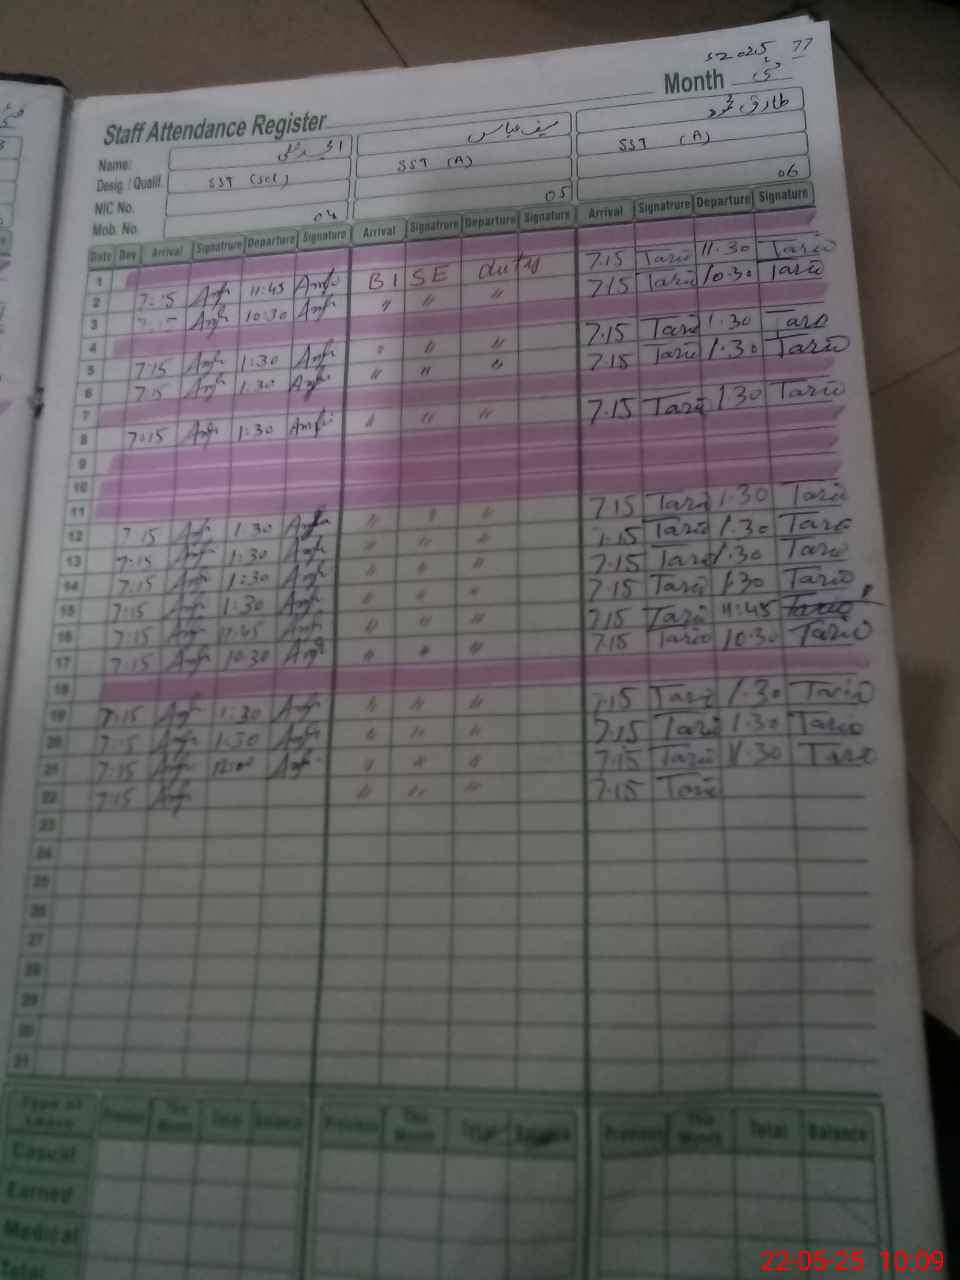 2025 77
Month مئی
Staff Attendance Register
Name: سیف عباس طارق محمود
Desig. / Qualif. SST (Sci) SST (A) SST (A)
NIC No.
Mob. No. 04 05 06
Date Day Arrival Signatrure Departure Signature Arrival Signatrure Departure Signature Arrival Signatrure Departure Signature
1
2 7:15 11:45 BISE duty 7.15 Tariq 11.30 Tariq
3 10:30 〃 〃 〃 7.15 Tariq 10.30 Tariq
4
5 7:15 1:30 〃 〃 7.15 Tariq 1.30 Tariq
6 7:15 1:30 〃 〃 〃 7.15 Tariq 1.30 Tariq
7
8 7:15 1:30 〃 〃 〃 7.15 Tariq 1.30 Tariq
9
10
11
12 7:15 1:30 〃 〃 〃 7.15 Tariq 1.30 Tariq
13 7:15 1:30 〃 〃 〃 7.15 Tariq 1.30 Tariq
14 7:15 1:30 〃 〃 〃 7.15 Tariq 1.30 Tariq
15 7:15 1:30 〃 〃 〃 7.15 Tariq 1.30 Tariq
16 7:15 11:45 〃 〃 〃 7.15 Tariq 11:45 Tariq
17 7:15 10:30 〃 〃 〃 7.15 Tariq 10.30 Tariq
18
19 7:15 1:30 〃 〃 〃 7.15 Tariq 1.30 Tariq
20 7:15 1:30 〃 〃 〃 7.15 Tariq 1.30 Tariq
21 7:15 12:00 〃 〃 〃 7.15 Tariq 1.30 Tariq
22 7:15 〃 〃 〃 7.15 Tariq
23
24
25
26
27
28
29
30
31
Type of Leave Previous This Month Total Balance Previous This Month Total Balance Previous This Month Total Balance
Casual
Earned
Medical
Total
22-05-25 10:09